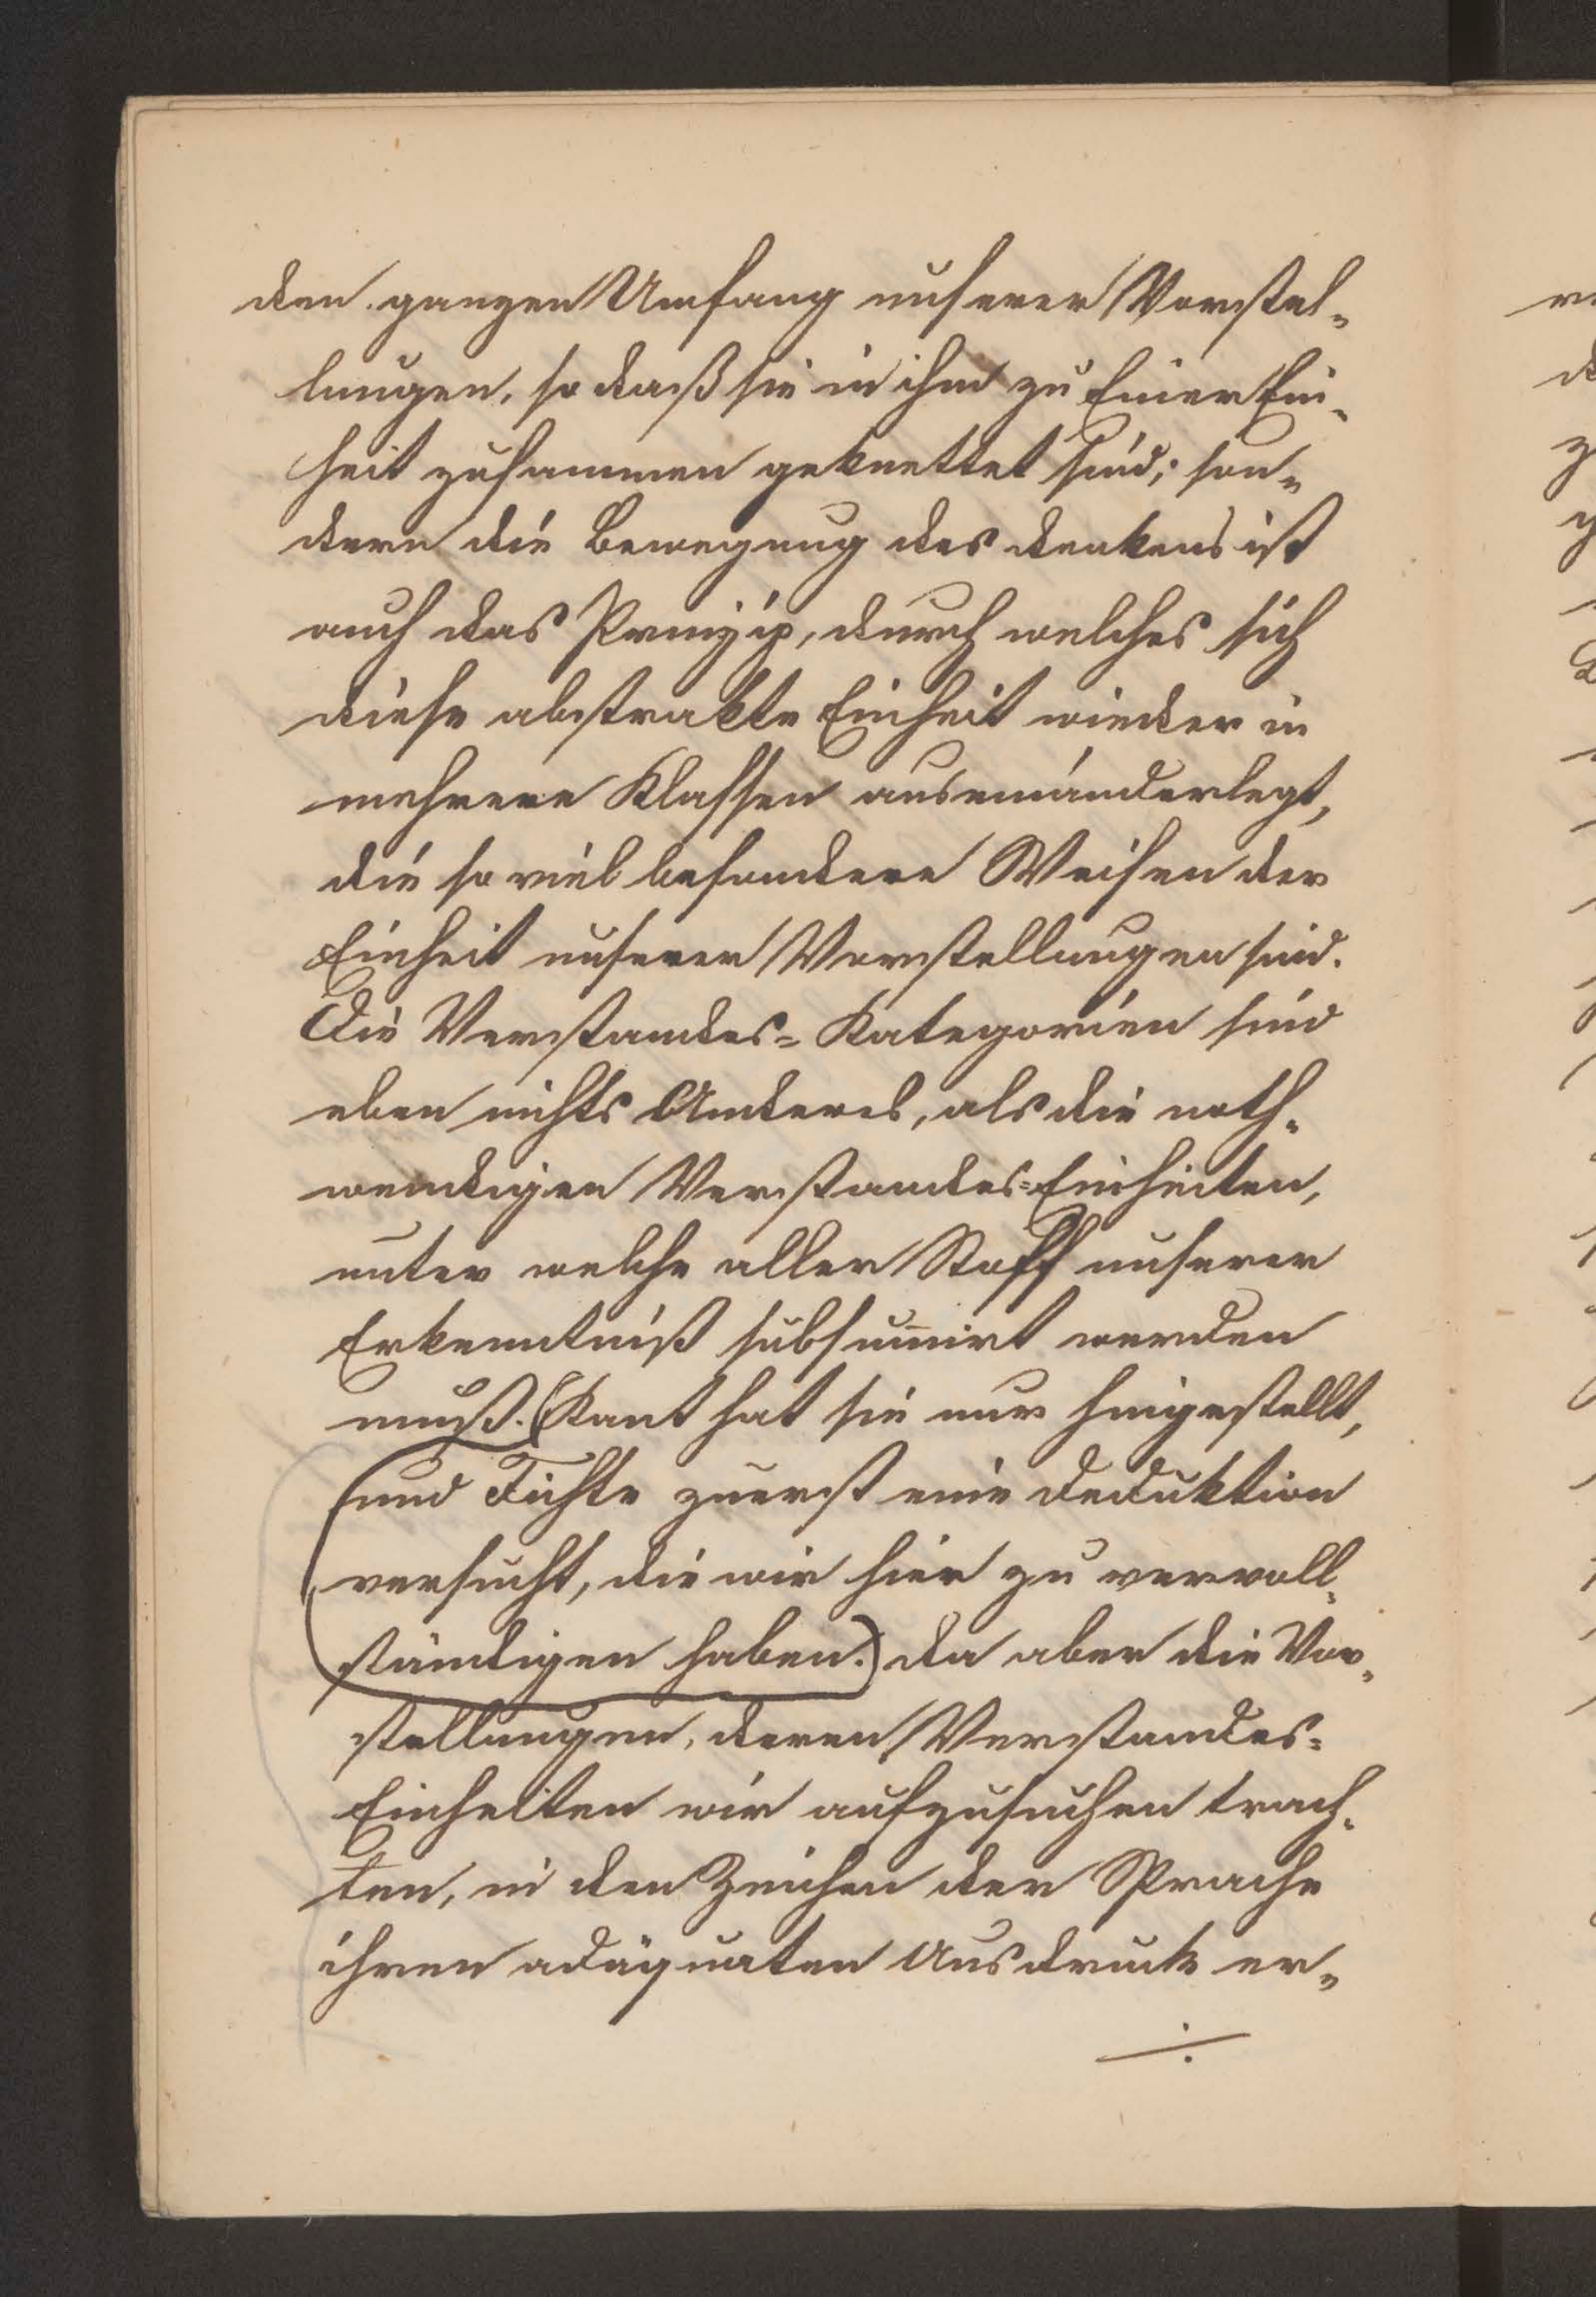 den ganzen Umfang unserer Vorstel-
lungen, so daß sie in ihm zu Einer Ein-
heit zusammen geknettet sind; son-
dern die Bewegung des Denkens ist
auch das Prinzip, durch welches sich
diese abstrakte Einheit wieder in
mehrere Klassen auseinanderlegt,
die so viel besondere Weisen der
Einheit unserer Vorstellungen sind.
Die Verstandes-Kategorien sind
eben nichts Anderes, als die noth-
wendigen Verstandes-Einheiten,
unter welche aller Stoff unserer
Erkenntniß subsumirt werden
muß. (Kant hat sie nur hingestellt,
und Fichte zuerst eine Deduktion
versucht, die wir hier zu vervoll-
ständigen haben.) Da aber die Vor-
stellungen, deren Verstandes-
Einheiten wir aufzusuchen trach-
ten, in den Zeichen der Sprache
ihren adäquaten Ausdruck er-